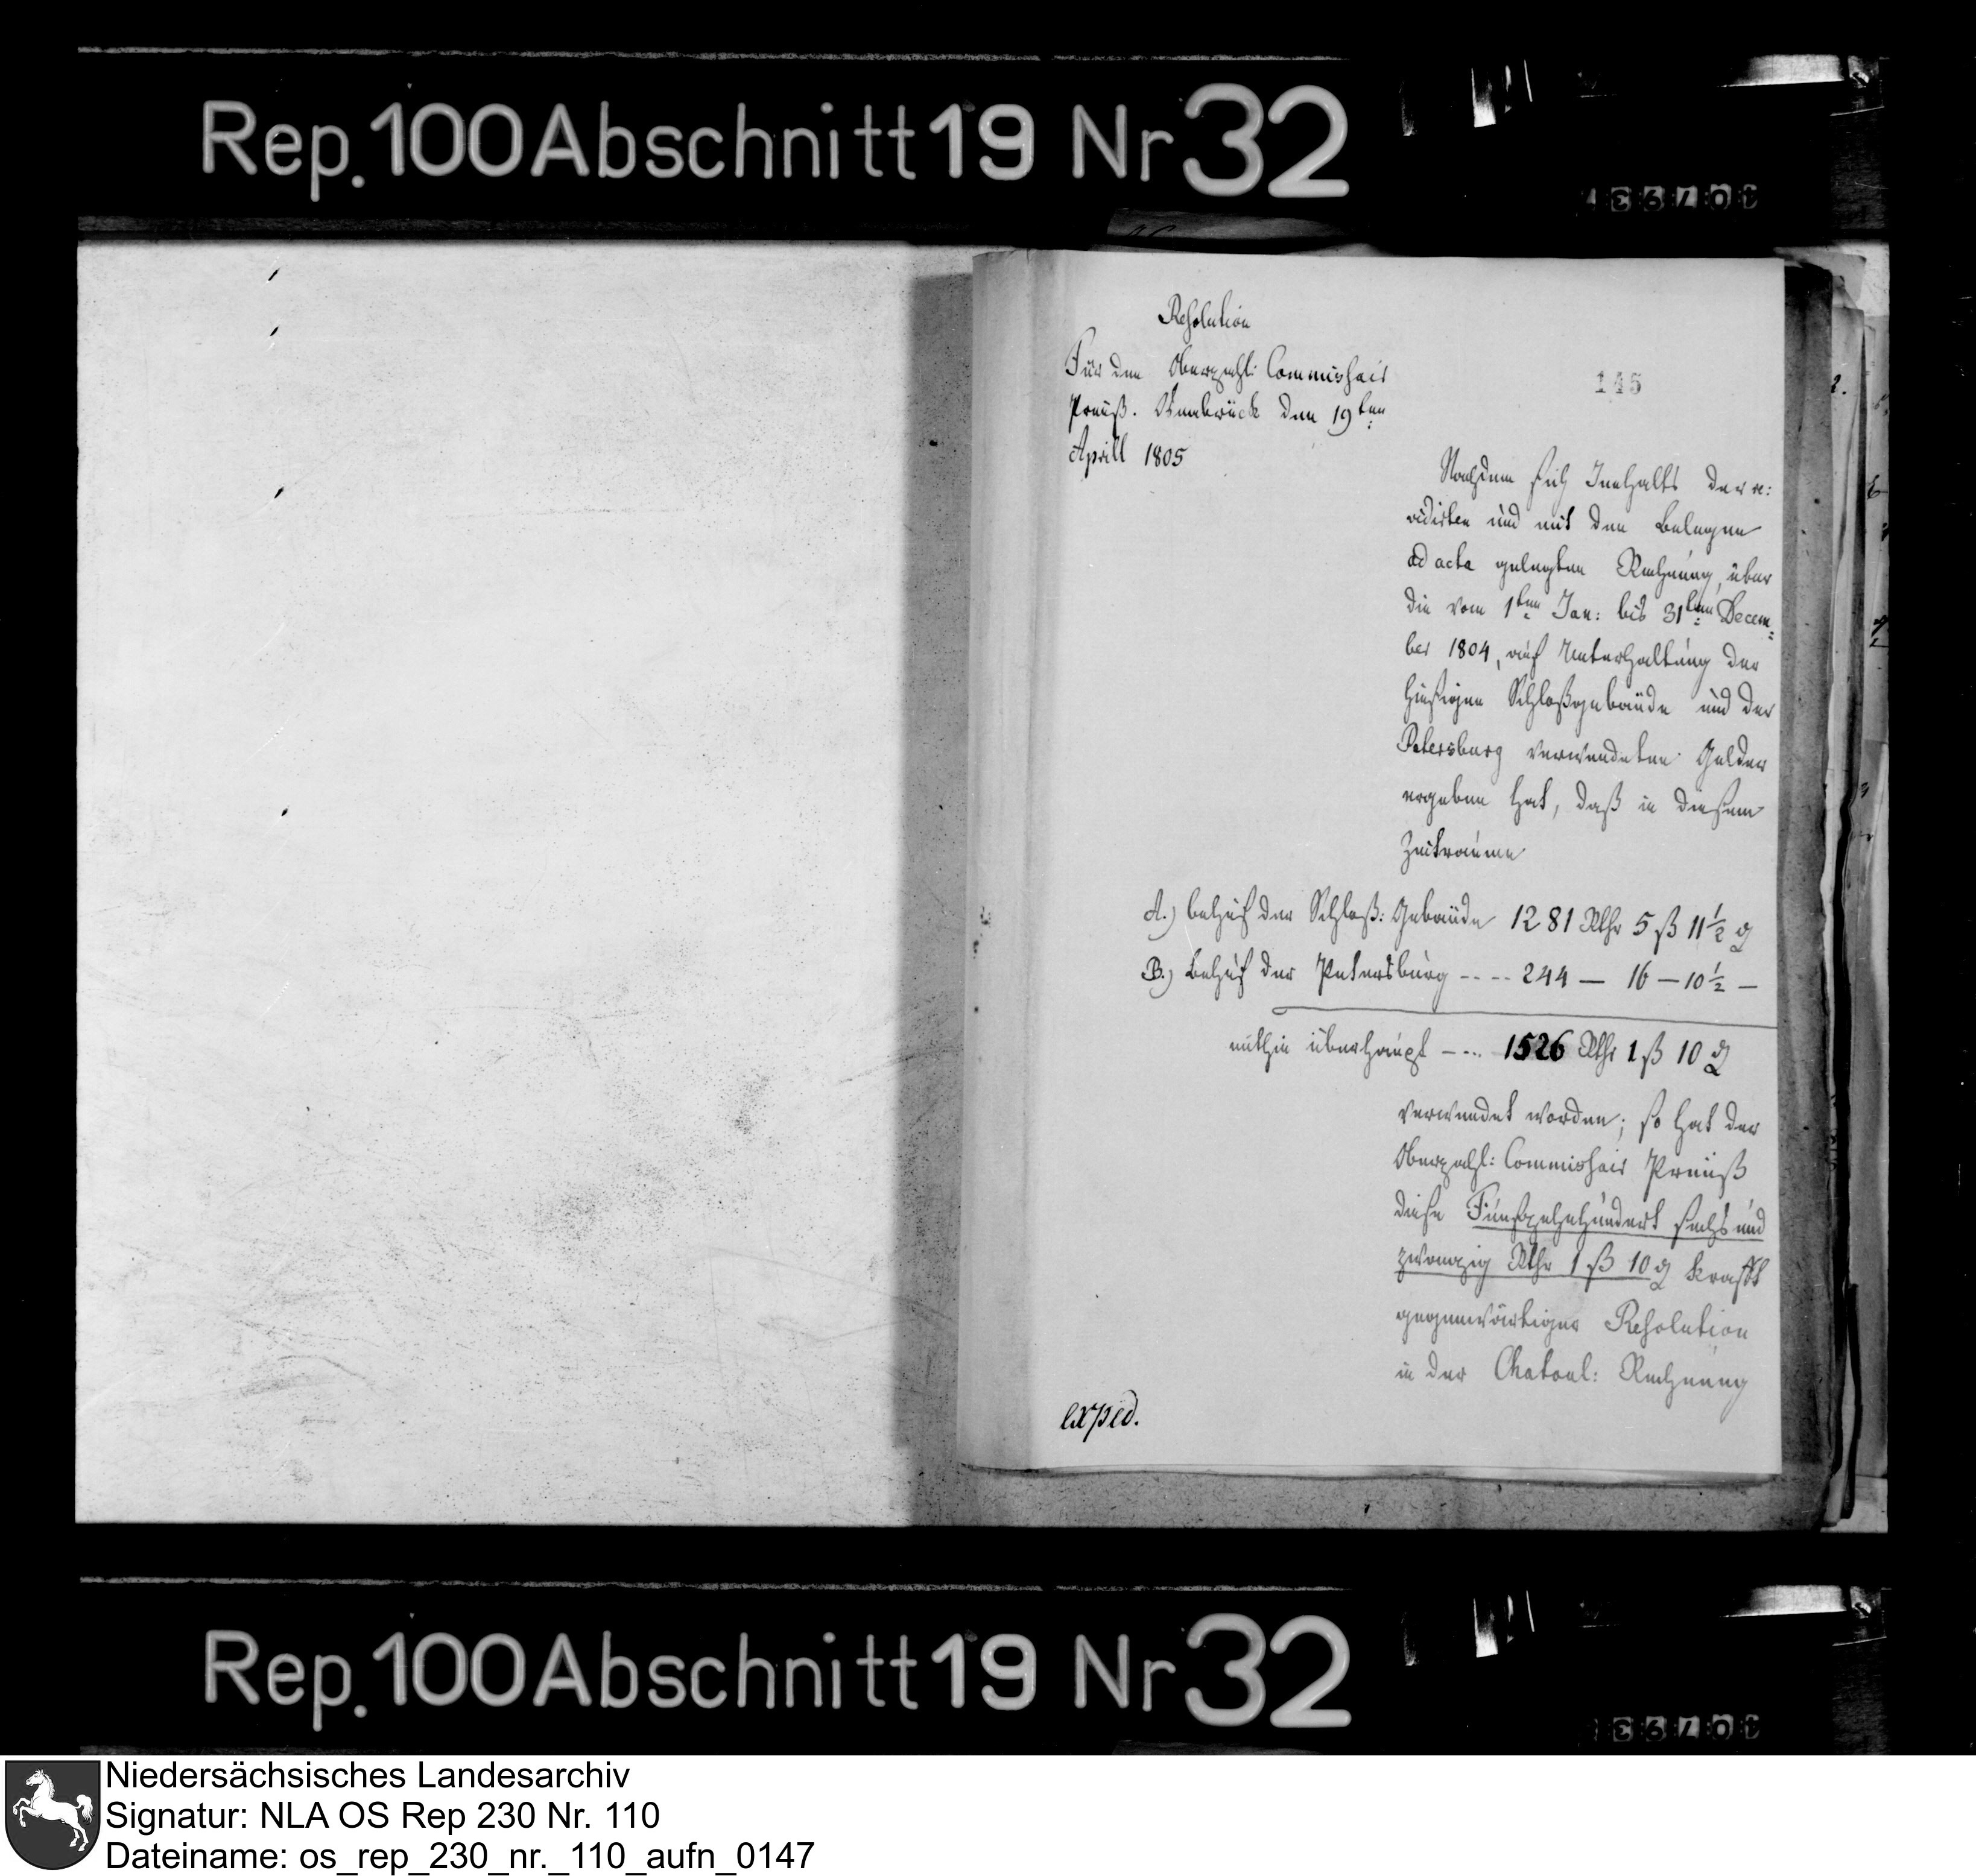 Rep. 100 Abschnitt 19 Nr 32
Resolution
Für den Oberzahl: Commissair
Preuß. Osnabrück den 19ten
Aprill 1805
145
Nachdem sich Innhalts der re:
vidirten und mit den Belegen
ad acta gelegten Rechnung, über
die vom 1ten Jan: bis 31ten Decem=
ber 1804, auf Unterhaltung der
hiesigen Schloßgebäude und der
Petersburg verwendeten Gelder
ergeben hat, daß in diesem
Zeitraume
A.) behuf der Schloß: Gebäude 1281 Rthr 5 ß 11½ ₰
B.) behuf der Petersburg ---- 244 — 16 — 10½ —
mithin überhaupt ---- 1526 Rthr 1 ß 10 ₰
verwendet worden; so hat der
Oberzahl: Commissair Preuß
diese Fünfzehnhundert sechs und
zwanzig Rthr 1 ß 10 ₰ krafft
gegenwärtiger Resolution
in der Chatoul: Rechnung
exped.
Rep. 100 Abschnitt 19 Nr 32
Niedersächsisches Landesarchiv
Signatur: NLA OS Rep 230 Nr. 110
Dateiname: os_rep_230_nr._110_aufn_0147